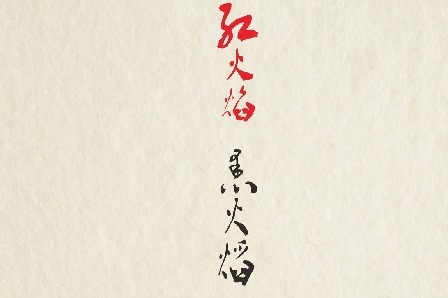 红火焰
黑火焰